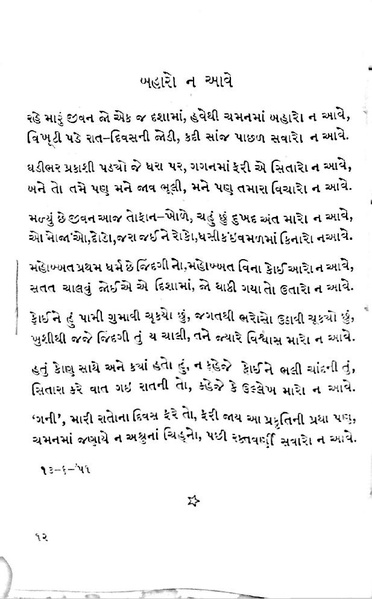 બહારો ન આવે
રહે મારું જીવન જો એક જ દશામાં, હવેથી ચમનમાં બહારો ન આવે,
વિખૂટી પડે રાત-દિવસની જોડી, કદી સાંજ પાછળ સવારો ન આવે.
ઘડીભર પ્રકાશી પડયો જે ધરા પર, ગગનમાં ફરી એ સિતારો ન આવે,
બને તો તમે પણ મને જાવ ભૂલી, મને પણ તમારા વિચારો ન આવે.
મળ્યું છે જીવન આજ તોફાન-ખોળે, ચહું છું દુખદ અંત મારો ન આવે,
ઓ મોજાંઓ, દોડો, જરા જઈને રોકો, ધસી વમળમાં કિનારો ન આવે.
મહોબ્બત પ્રથમ ધર્મ છે જિંદગીનો, મહોબ્બત વિના કોઈ આરો ન આવે,
સતત ચાલવું જોઈએ એ દિશામાં, જો થાકી ગયા તો ઉતારો ન આવે.
કોઈને તું પામી ગુમાવી ચૂકયો છું, જગતથી ભરોસો ઉઠાવી ચૂકયો છું,
ખુશીથી જજે જિંદગી તું ય ચાલી, તને જ્યારે વિશ્વાસ મારો ન આવે.
હતું કોણ સાથે અને કયાં હતો તું, ન કહેજે કોઈને ભલી ચાંદની તું,
સિતારા કરે વાત ગઇ રાતની તો, કહેજે કે ઉલ્લેખ મારો ન આવે.
'ગની', મારી રાતોના દિવસ ફરે તો, ફરી જાય આ પ્રકૃતિની પ્રથા પણ,
ચમનમાં જણાયે ન અશ્રુનાં ચિહ્નો, પછી રક્તવર્ણી સવારો ન આવે.
૧૨